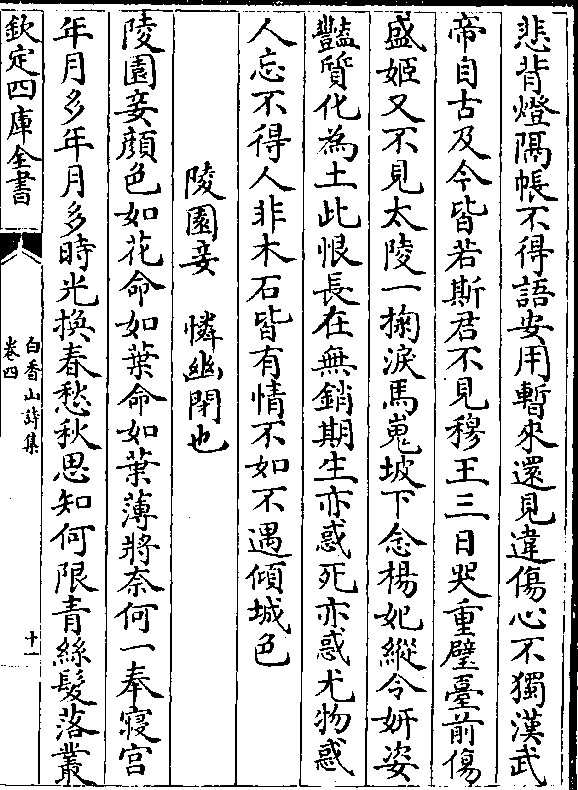 悲背燈隔帳不得語安用暫來還見違傷心不獨漢武
帝自古及今皆若斯君不見穆王三日哭重璧臺前傷
盛姬又不見太陵一掬淚馬嵬坡下念楊妃縱令妍姿
豔質化為土此恨長在無銷期生亦惑死亦惑尤物惑
人忘不得人非木石皆有情不如不遇傾城色
陵園妾 憐幽閉也
陵園妾顔色如花命如葉命如葉薄將奈何一奉寢宫
年月多年月多時光換春愁秋思知何限青絲髮落叢
欽定四庫全書
白香山詩集
卷四
十一